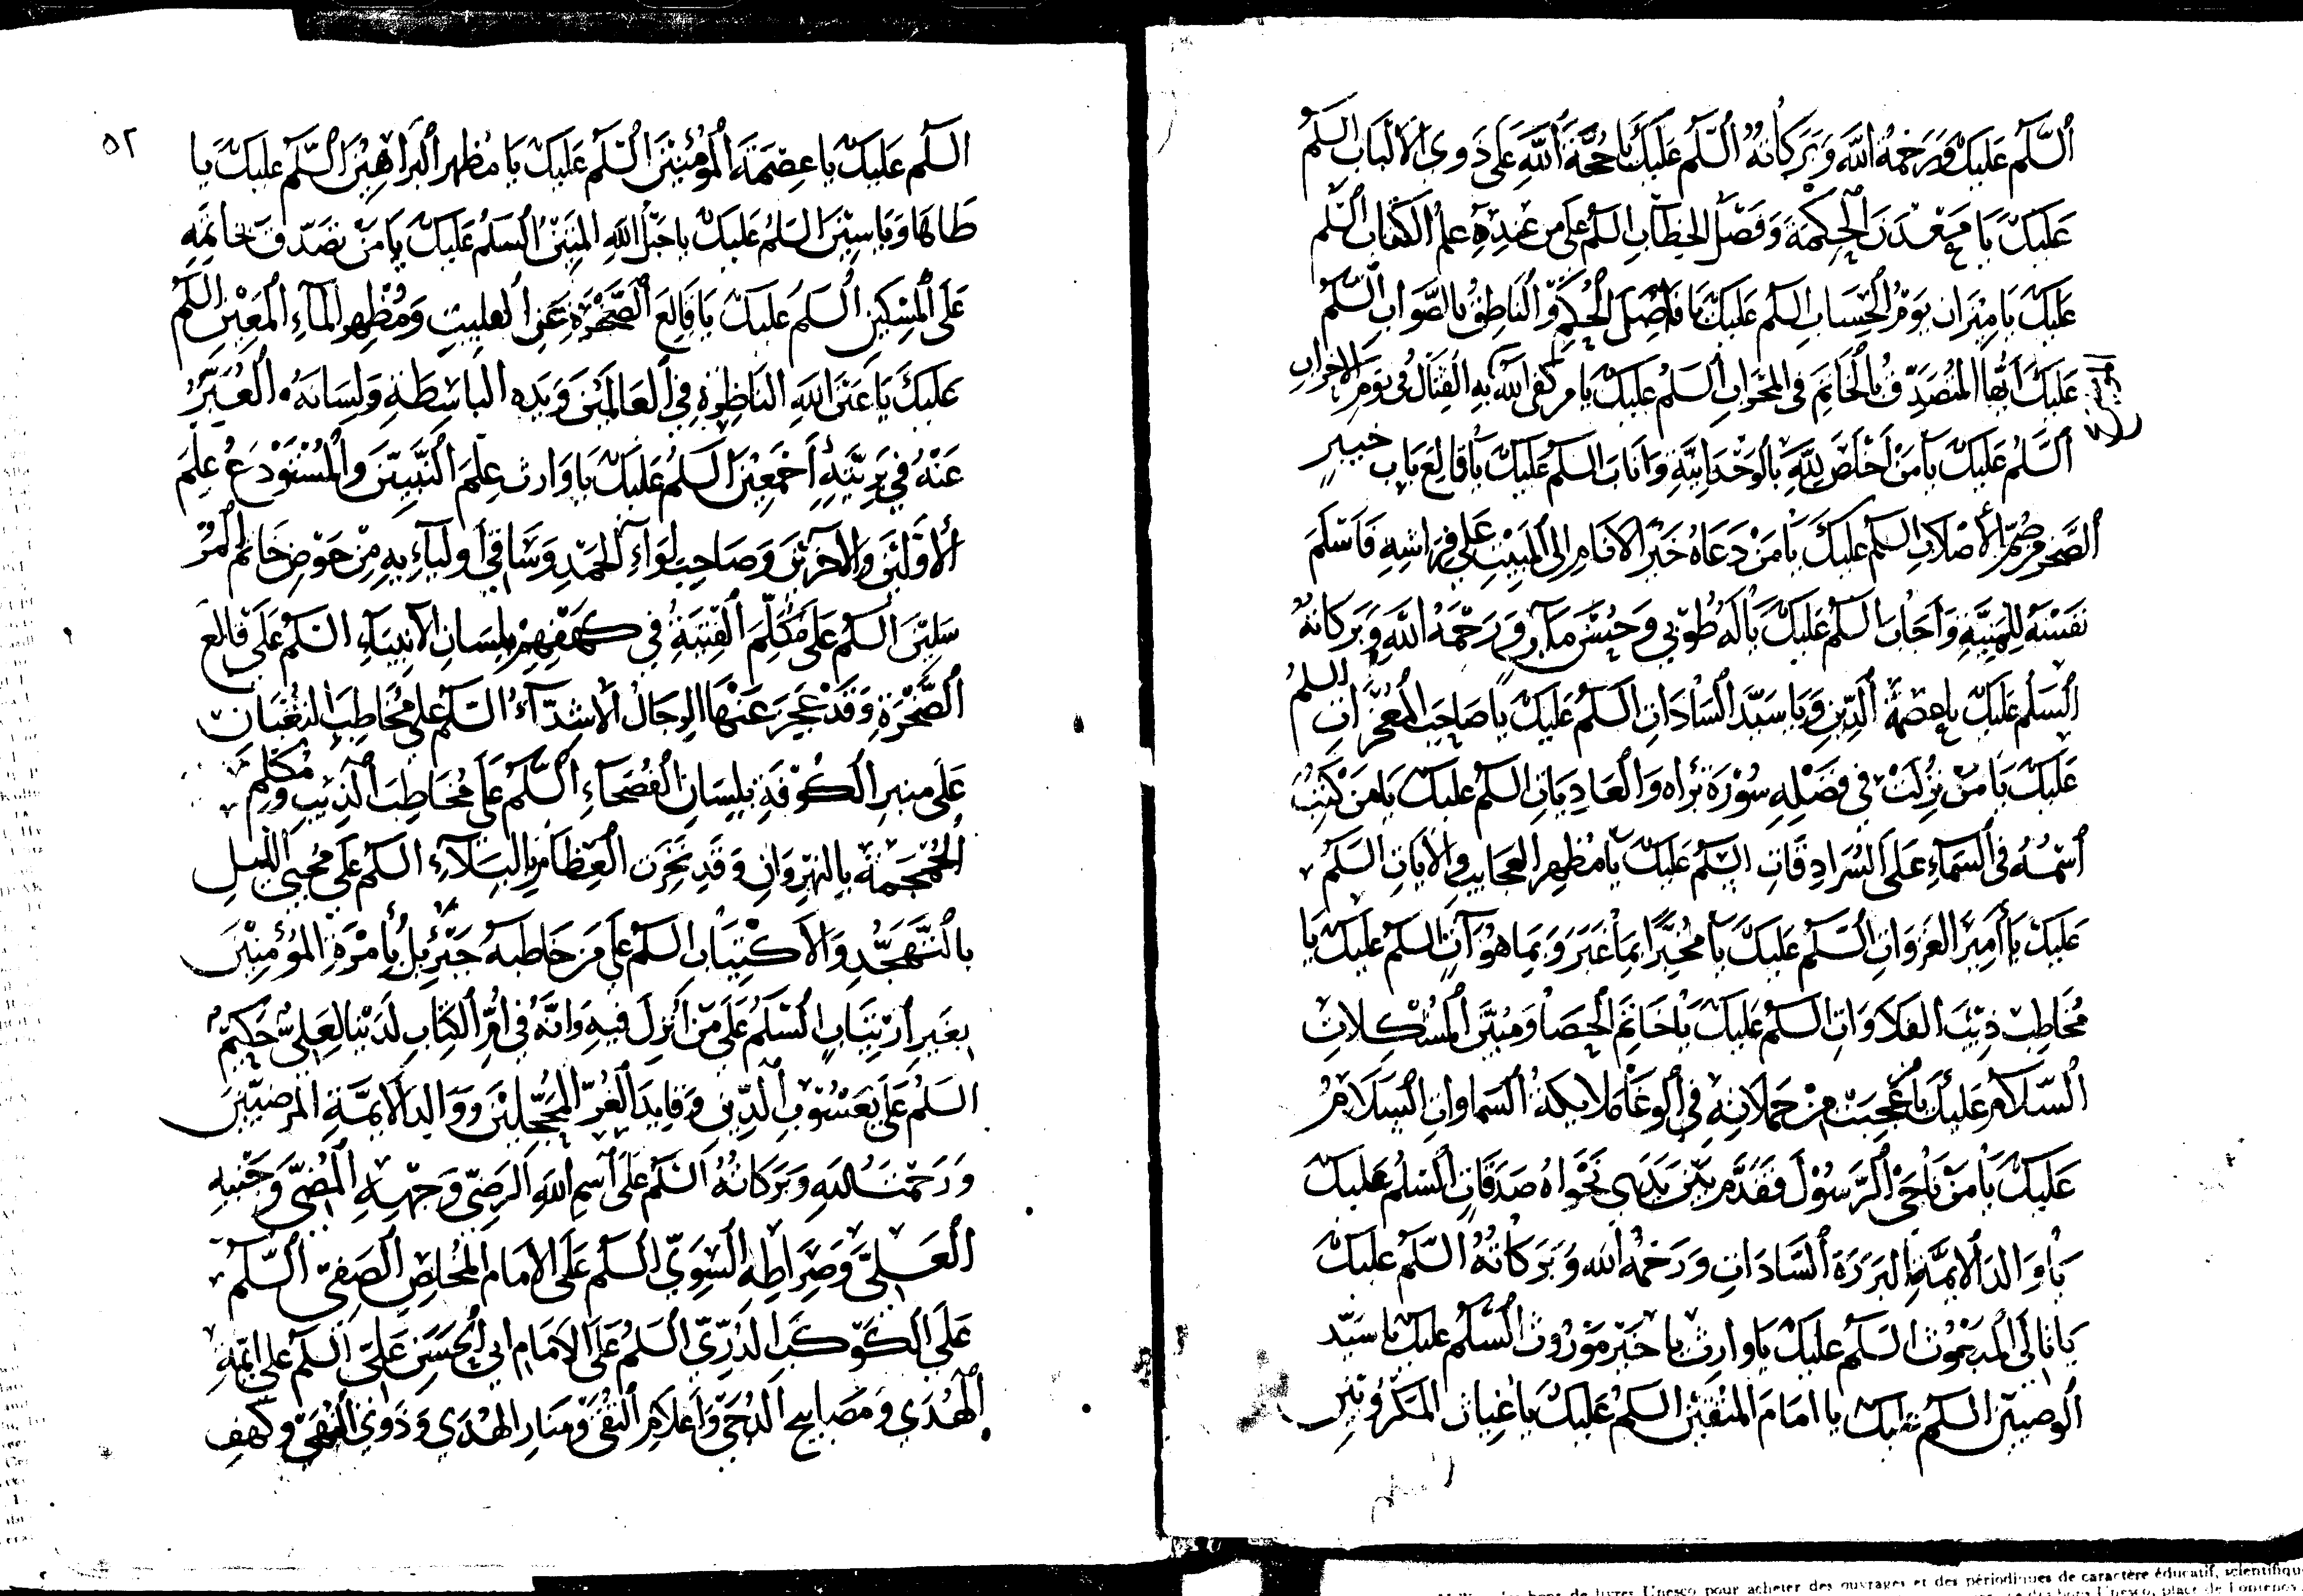 السَّلَم عَلَيكَ وَرَحمَةُ اللَّهِ وَبَرَكاتُهُ السَّلَم عَلَيكَ يَا حُجَّةَ اللَّهِ عَلَى ذَوِى الاَلبَابِ السلم
عَلَيكَ يَا مَعْدَنَ الحِكمَةِ وَفَصْلَ الخِطَابِ السلم عَلَى مَن عِندِهِ عِلمُ الكِتَابِ السَّلم
عَلَيكَ يَا مِيْزَان يَومِ الحِسَابِ السلم عَلَيكَ يَا فَاصِلَ الحُكمِ وَالنَاطِق بالصَّوَابِ السَّلم
عَلَيكَ اَيُّهَا المُتَصَدِّقُ بالخَاتِمِ فى المِحْرَابِ السَلم عَلَيكَ يا من كفى اللّٰه بِهِ القِتَالَ فى يَومِ الاحزاب
السَّلم عَلَيكَ يَا مَنْ اَخلَصَ لِلَّهِ بالوَحْدَانِيَّةِ وَاَنَابَ السلم عَلَيكَ يَا قَالِعَ بَابِ خَيبَرٍ
الصَّخر من صُمِّ الأَصْلَابِ السلم عَلَيكَ يَا مَنْ دَعَاهُ خَيرُ الاَنَامِ اِلى المَبِيْتِ عَلى فِرَاشِهِ فَاَسْلَمَ
نَفسَهُ لِلمَنِيَّةِ وَاَجَابَ السلم عَلَيكَ يَا لَهُ طُوبى وَحُسْنَ مَآبٍ وَرَحْمَةُ اللَّهِ وَبَركاتُهُ
السَلم عَلَيكَ يا عِصمَةَ الدِّينِ وَيَا سَيِّدَ السَّادَاتِ السَلم عَلَيكَ يَا صَاحِبَ المُعْجِزَات السلم
عَلَيكَ يَا مَنْ نزلَتْ فى فَضْلِهِ سُوْرَة بَرَاه وَالعَادِيَاتِ السلم عَلَيكَ يَا مَن كُتِبَ
اسْمُهُ فى السَمَآءِ عَلَى السُرَادِقَاتِ السلم عَلَيكَ يَا مُظهِرَ العَجَايبِ وَالاَيَاتِ السَلم
عَلَيكَ يَا اَمِيرَ الغَزَوَاتِ السَّلم عَلَيكَ يَا مُخبِرًا بِمَا غَبَرَ وَبِمَا هُوَ آتٍ السلم عَلَيكَ يا
مُخَاطِبَ ذِئبَ الفَلَاوَات السلم عَلَيكَ يَا خَاتِمَ الحَصَا وَمُبَيِّنَ المُشكِلَاتِ
السَّلَام عَلَيكَ يَا مَن عَجِبَت مِنْ حَمَلَاتِهِ فى الوَغَا مَلَايكَةُ السَّماوات السَلَامُ
عَلَيكَ يَا مَنْ نَاجَى الرَّسُوْلَ فَقَدَّمَ بَيْنَ يَدَى نَجْوَاهُ صَدَقَاتٍ السَلم عَلَيكَ
يَا وَالِدَ الاَئِمَّةِ البَرَرَةِ السَّادَاتِ وَرَحْمَةُ اللّٰه وَبَرَكَاتُهُ السَّلم عَلَيكَ
يَا تَالِى المَبْعُوْث السَلم عَلَيكَ يَا وَارِثَ يا خَيرَ مَورُوث السَّلم عَلَيكَ يَا سَيِّد
الوصيين السلم عليك يا امَامَ المُتَّقِين السلم عَلَيكَ يَا غِيَاثَ المَكرُوبين
٥٢
السلم عَلَيكَ يَا عِصْمَةَ المُؤمِنِيْنَ السَّلم عَلَيكَ يَا مُظهِرَ البَرَاهِيْن السَّلم عَلَيكَ يَا
طَاهَا وَيَاسِيْنَ السَلمُ عَلَيكَ يَا حَبلَ اللَّهِ المَتِين السَلم عَلَيكَ يَا مَنْ تصَدَّقَ بخَاتِمِهِ
عَلَى المِسْكِين السلم عَلَيكَ يَا قَالِعَ الصَّخْرَةِ عَنِ القلِيبِ وَمُظهِر المَاءِ المَعِيْن السلم
عَلَيكَ يَا عَيْنَ اللَّهِ النَاظِرَةِ فِى العَالَمِيْنَ وَيَدِهِ البَاسِطَةِ وَلِسَانَهُ المُعَبِّرُ
عَنْهُ فى بَرِيَّتِهِ اَجْمَعِيْنَ السلم عَلَيكَ يَا وَارِث عِلمَ النَّبِيّيْنَ وَالمُسْتَوْدَعُ عِلمَ
الأَوَّلِيْنَ وَالآخَرِيْنَ وَصَاحِبَ لِوَاءِ الحَمدِ وَسَاقِى اَوليَآءِيهِ مِنْ حَوْضِ خَاتَم المُرْ
سَلِيْنَ السلم عَلَى مُكَلِّمِ الفِتيَةِ فى كَهفِهِمْ بِلِسَانِ الاَنبِيَاءِ السَّلم عَلَى قالع
الصَّخْرَةِ وَقَدْ عَجِزَ عَنْهَا الرِجَالُ الاَشِدَّآءُ السَّلم عَلى مُخَاطِبَ الثُعْبَان
عَلى مِنبَر الكُوْفَةِ بِلِسَانِ الفُصَحَآءِ السَّلم عَلَى مُخَاطِبَ الذِّيبِ وَمُكَلِّم
الجُمْجُمَةِ بالنَهْرَوَانِ وَقَد نَخِرَت العِظَامُ بِالبَلَآءِ السلم عَلَى مُحيى اللَيلِ
بالتَّهَجُّدِ وَالاَكْتِيَابِ السلم عَلى مَن خَاطبَهُ جَبرَئِيلُ بِأمْرَةِ المُؤمِنِيْنَ
بِغَيرِ اَرْتِيَابٍ السَّلمُ عَلَى مَنْ اُنزِلَ فيهِ وَاِنَّهُ فى اُمِّ الكِتَابِ لَدَيْنَا لَعَلِىٌّ حَكِيْمٌ
السَلم عَلَى يَعْسُوْبِ الدِّيْنِ وَقَايدَ الغُرِّ المُحَجَّلِيْنَ وَوَالِد الاَيِمَّةِ المَرضِيِّيْنَ
وَرَحْمَتُ اللهِ وَبَرَكَاتُهُ السَلم عَلَى اَسمِ اللهِ الرَضِىّ وَجهِهِ المُضِىّ وَجَنْبِهِ
العَلِىّ وَصِرَاطِهِ السَّوِىّ السلم عَلَى الاِمَام المُخلِصِ الصَفِىّ السَّلم
عَلَى الكَوْكَبِ الدُرِّىّ السَلمُ عَلَى الاَمَام اَبى الحَسَنِ عَلِىّ السلم على ائمّةِ
الهُدَى وَمَصَابِيحِ الدُجَى وَاَعْلَامِ التُقَى وَمَنَارِ الهُدَى وَذَوِى النُّهَى وَكَهفِ